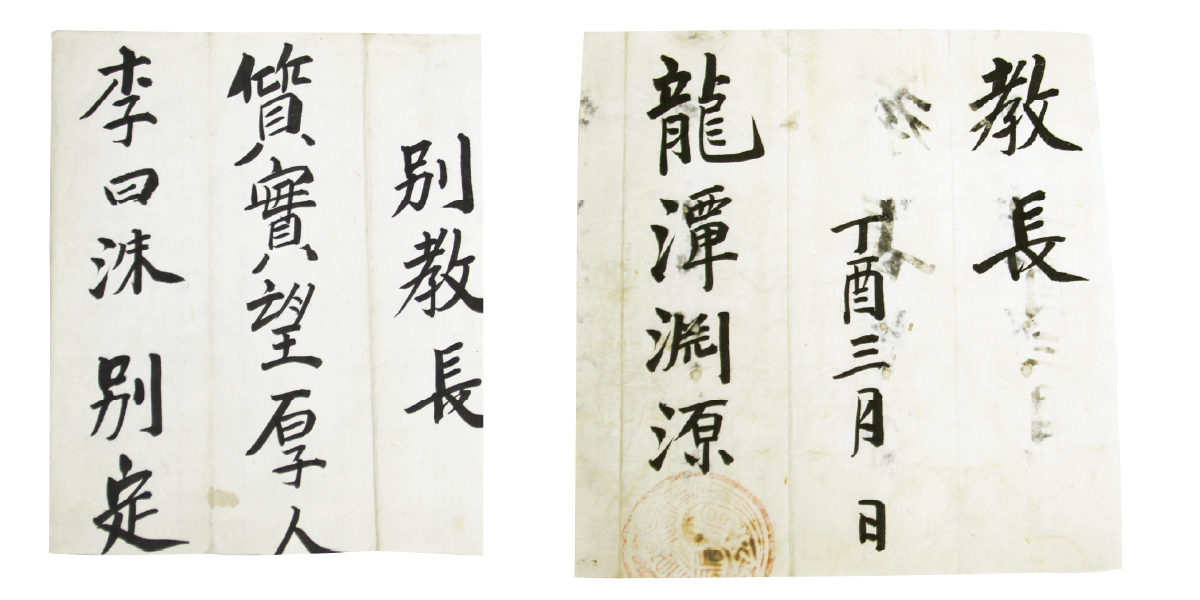 別教長
質實望厚人
李曰洙 別定
教長
丁酉三月 日
龍潭淵源